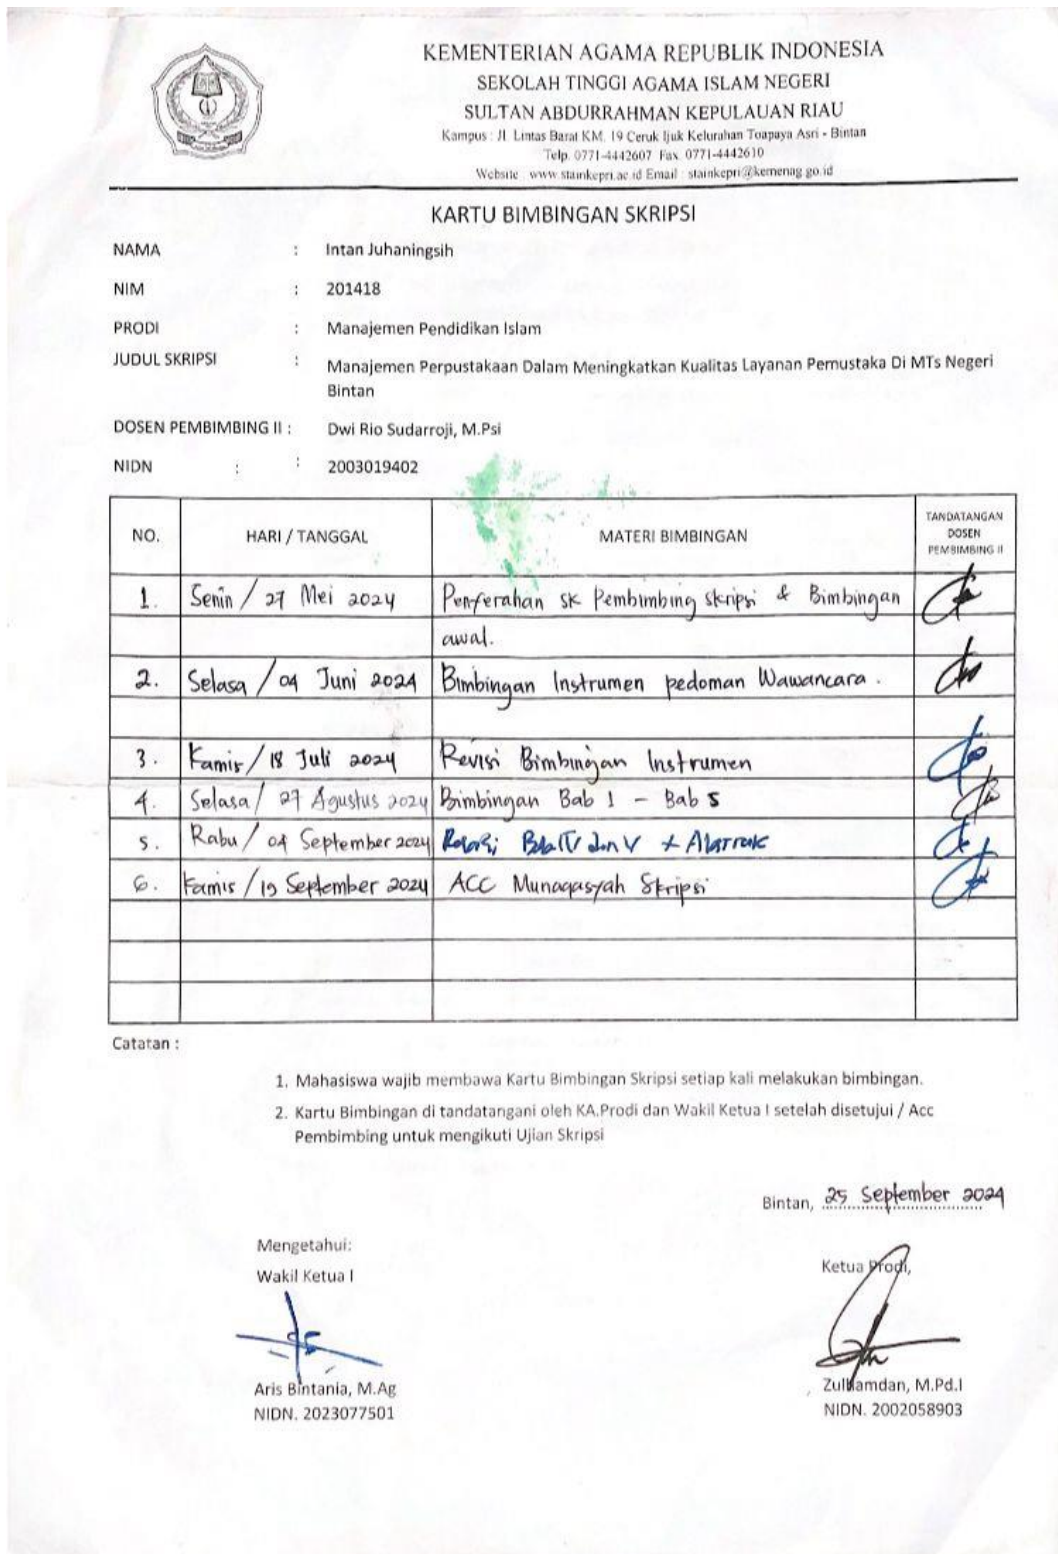 KEMENTERIAN AGAMA REPUBLIK INDONESIA
SEKOLAH TINGGI AGAMA ISLAM NEGERI
SULTAN ABDURRAHMAN KEPULAUAN RIAU
Kampus : Jl. Lintas Barat KM. 19 Ceruk Ijuk Kelurahan Toapaya Asri - Bintan
Telp. 0771-4442607 Fax. 0771-4442610
Website : www.stainkepri.ac.id Email : stainkepri@kemenag.go.id
KARTU BIMBINGAN SKRIPSI
NAMA : Intan Juhaningsih
NIM : 201418
PRODI : Manajemen Pendidikan Islam
JUDUL SKRIPSI : Manajemen Perpustakaan Dalam Meningkatkan Kualitas Layanan Pemustaka Di MTs Negeri
Bintan
DOSEN PEMBIMBING II : Dwi Rio Sudarroji, M.Psi
NIDN : : 2003019402
NO. HARI / TANGGAL MATERI BIMBINGAN TANDATANGAN DOSEN PEMBIMBING II
1. Senin / 27 Mei 2024 Penyerahan SK Pembimbing Skripsi & Bimbingan
awal.
2. Selasa / 04 Juni 2024 Bimbingan Instrumen pedoman Wawancara.
3. Kamis / 18 Juli 2024 Revisi Bimbingan Instrumen
4. Selasa / 27 Agustus 2024 Bimbingan Bab 1 - Bab 5
5. Rabu / 04 September 2024 Bab IV dan V +
6. Kamis / 19 September 2024 ACC Munaqasyah Skripsi
Catatan :
1. Mahasiswa wajib membawa Kartu Bimbingan Skripsi setiap kali melakukan bimbingan.
2. Kartu Bimbingan di tandatangani oleh KA.Prodi dan Wakil Ketua I setelah disetujui / Acc
Pembimbing untuk mengikuti Ujian Skripsi
Bintan, 25 September 2024
Mengetahui:
Wakil Ketua I
Ketua Prodi,
Aris Bintania, M.Ag
NIDN. 2023077501
Zulhamdan, M.Pd.I
NIDN. 2002058903